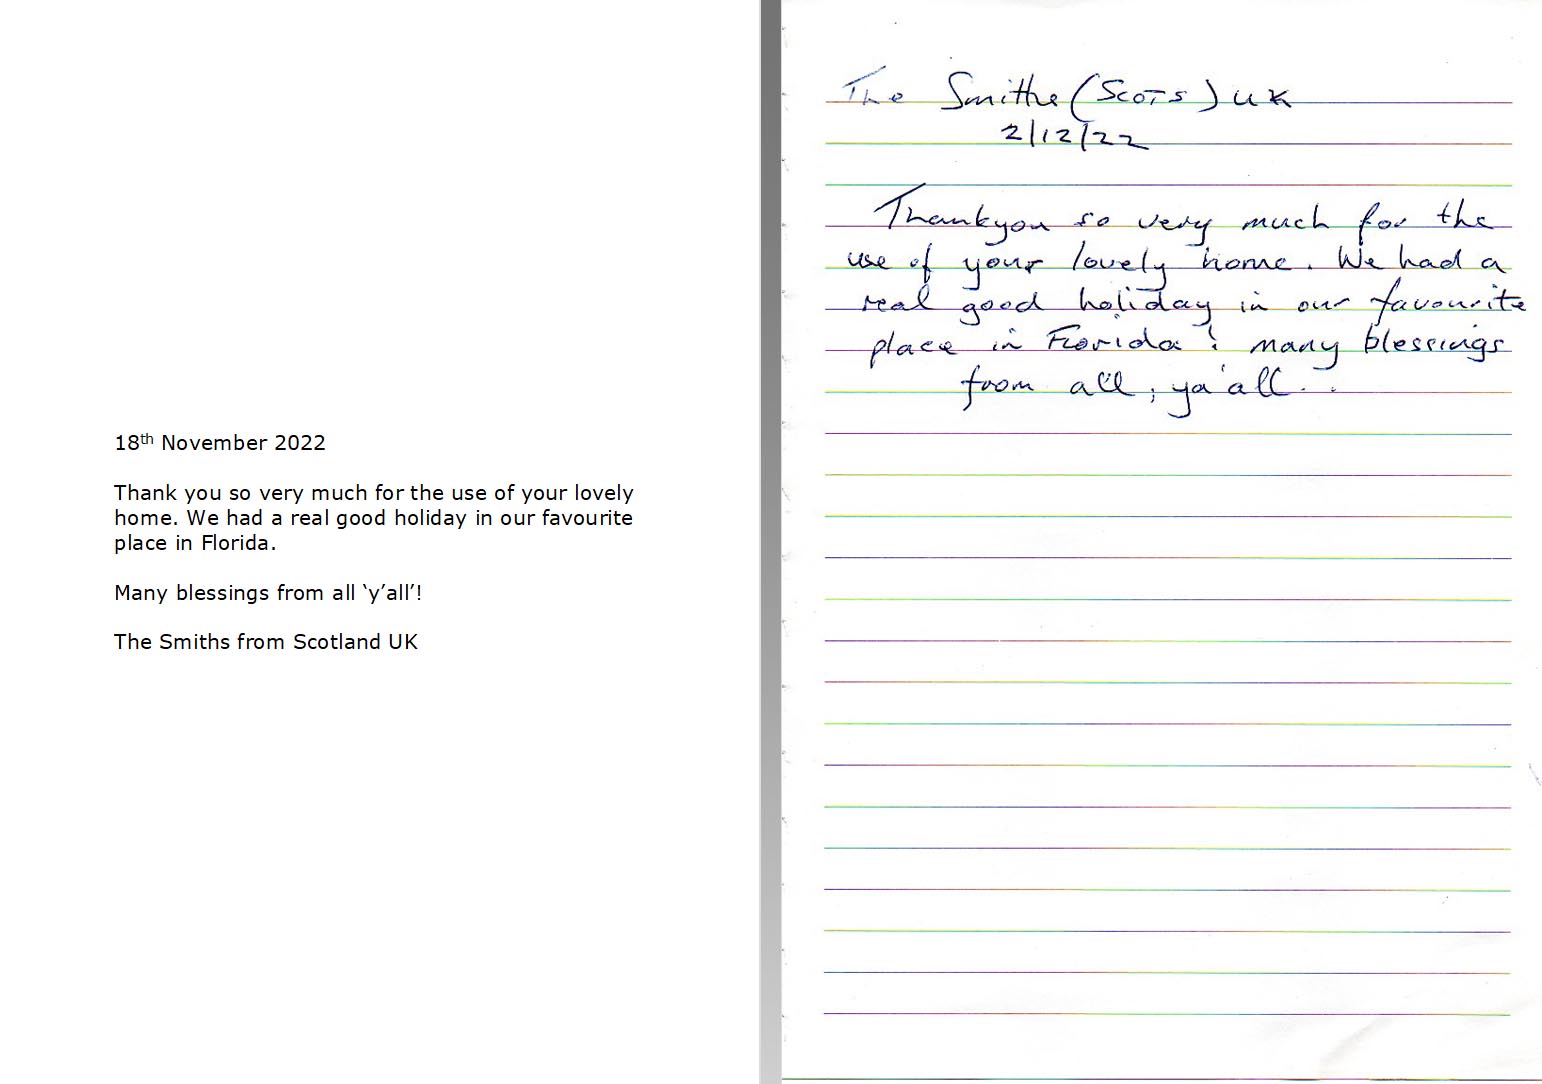 18th November 2022
Thank you so very much for the use of your lovely
home. We had a real good holiday in our favourite
place in Florida.
Many blessings from all ‘y’all’!
The Smiths from Scotland UK
The Smiths (Scots) UK
2/12/22
Thankyou so very much for the
use of your lovely home. We had a
real good holiday in our favourite
place in Florida! many blessings
from all, ya'all..